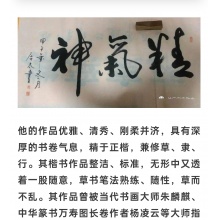 精氣神
他的作品优雅、清秀、刚柔并济，具有深
厚的书卷气息，精于正楷，兼修草、隶、
行。其楷书作品整洁、标准，无形中又透
着一股随意，草书笔法熟练、随性，草而
不乱。其作品曾被当代书画大师朱麟麒、
中华篆书万寿图长卷作者杨凌云等大师指